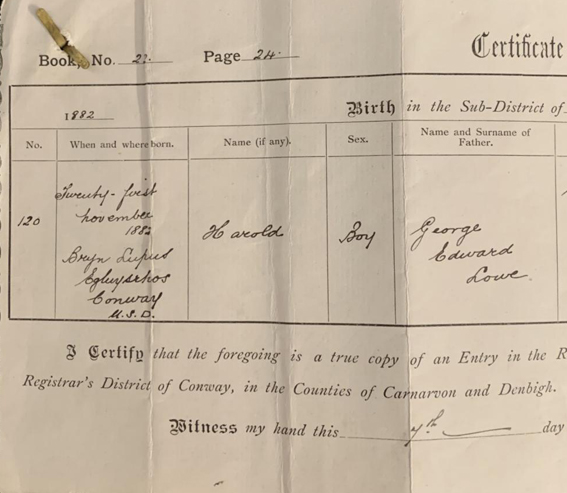 Book, No. 21. Page 24. Certificate
1882 Birth in the Sub-District of
No. When and where born. Name (if any). Sex. Name and Surname of Father.
120 Twenty-first november 1882 Bryn Lupus Egluysrhos Conway U.S.D. Harold Boy George Edward Lowe.
I Certify that the foregoing is a true copy of an Entry in the R
Registrar's District of Conway, in the Counties of Carnarvon and Denbigh.
Witness my hand this 7th day